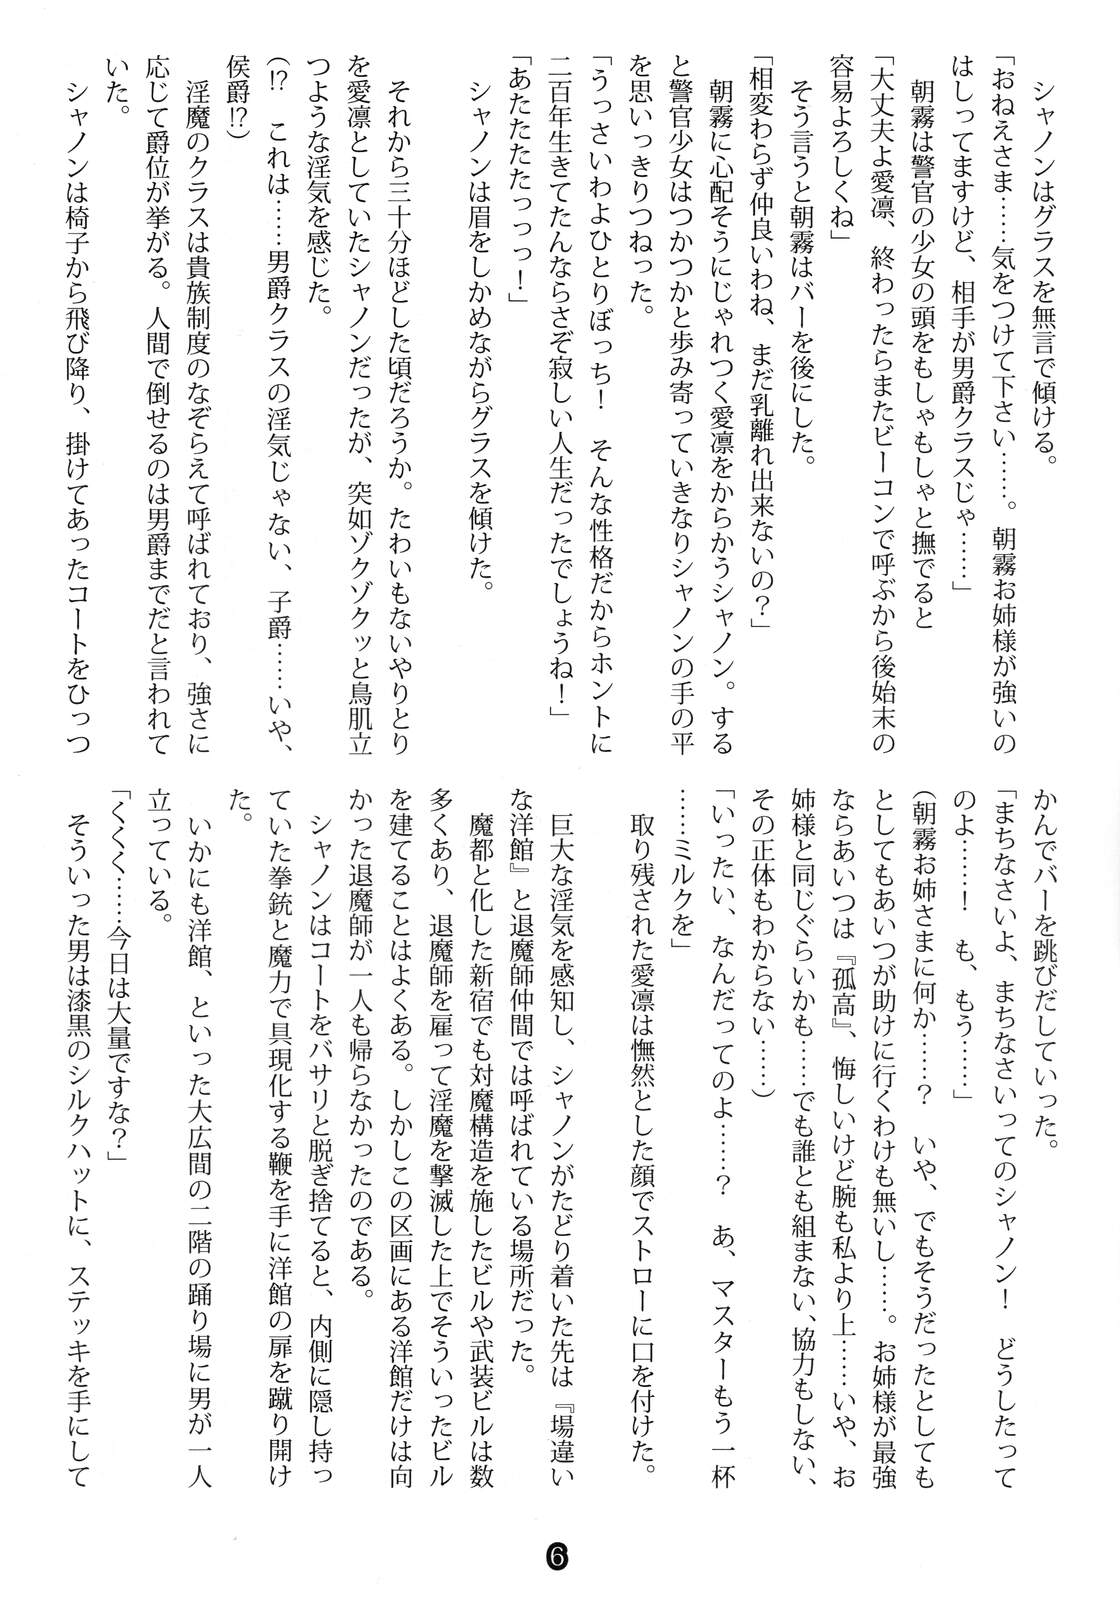 シャノンはグラスを無言で傾ける。
「おねえさま……気をつけて下さい……。朝霧お姉様が強いの
はしってますけど、相手が男爵クラスじゃ……」
朝霧は警官の少女の頭をもしゃもしゃと撫でると
「大丈夫よ愛凛、終わったらまたビーコンで呼ぶから後始末の
容易よろしくね」
そう言うと朝霧はバーを後にした。
「相変わらず仲良いわね、まだ乳離れ出来ないの？」
朝霧に心配そうにじゃれつく愛凛をからかうシャノン。する
と警官少女はつかつかと歩み寄っていきなりシャノンの手の平
を思いっきりつねった。
「うっさいわよひとりぼっち！　そんな性格だからホントに
二百年生きてたんならさぞ寂しい人生だったでしょうね！」
「あたたたたっっっ！」
シャノンは眉をしかめながらグラスを傾けた。
それから三十分ほどした頃だろうか。たわいもないやりとり
を愛凛としていたシャノンだったが、突如ゾクゾクッと鳥肌立
つような淫気を感じた。
（!?　これは……男爵クラスの淫気じゃない、子爵……いや、
侯爵!?）
淫魔のクラスは貴族制度のなぞらえて呼ばれており、強さに
応じて爵位が挙がる。人間で倒せるのは男爵までだと言われて
いた。
シャノンは椅子から飛び降り、掛けてあったコートをひっつ
かんでバーを跳びだしていった。
「まちなさいよ、まちなさいってのシャノン！　どうしたって
のよ……！　も、もう……」
（朝霧お姉さまに何か……？　いや、でもそうだったとしても
としてもあいつが助けに行くわけも無いし……。お姉様が最強
ならあいつは『孤高』、悔しいけど腕も私より上……いや、お
姉様と同じぐらいかも……でも誰とも組まない、協力もしない、
その正体もわからない……）
「いったい、なんだってのよ……？　あ、マスターもう一杯
……ミルクを」
取り残された愛凛は憮然とした顔でストローに口を付けた。
巨大な淫気を感知し、シャノンがたどり着いた先は『場違い
な洋館』と退魔師仲間では呼ばれている場所だった。
魔都と化した新宿でも対魔構造を施したビルや武装ビルは数
多くあり、退魔師を雇って淫魔を撃滅した上でそういったビル
を建てることはよくある。しかしこの区画にある洋館だけは向
かった退魔師が一人も帰らなかったのである。
シャノンはコートをバサリと脱ぎ捨てると、内側に隠し持っ
ていた拳銃と魔力で具現化する鞭を手に洋館の扉を蹴り開け
た。
いかにも洋館、といった大広間の二階の踊り場に男が一人
立っている。
「くくく……今日は大量ですな？」
そういった男は漆黒のシルクハットに、ステッキを手にして
6